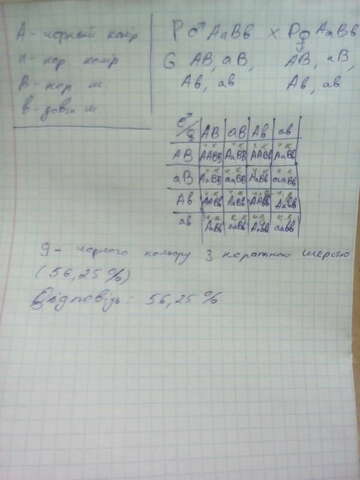 А - чорный колір
а - кор колір
В - кор ш
в - довг ш
P ♂ АаВв × P ♀ АаВв
G АВ, аВ, АВ, аВ,
Ав, ав Ав, ав
♂/♀ АВ аВ Ав ав
АВ ААВВ АаВВ ААВв АаВв
аВ АаВВ ааВВ АаВв ааВв
Ав ААВв АаВв
ав АаВв ааВв
9 - чорного кольору з короткою шерстю
(56,25%)
Відповідь: 56,25%